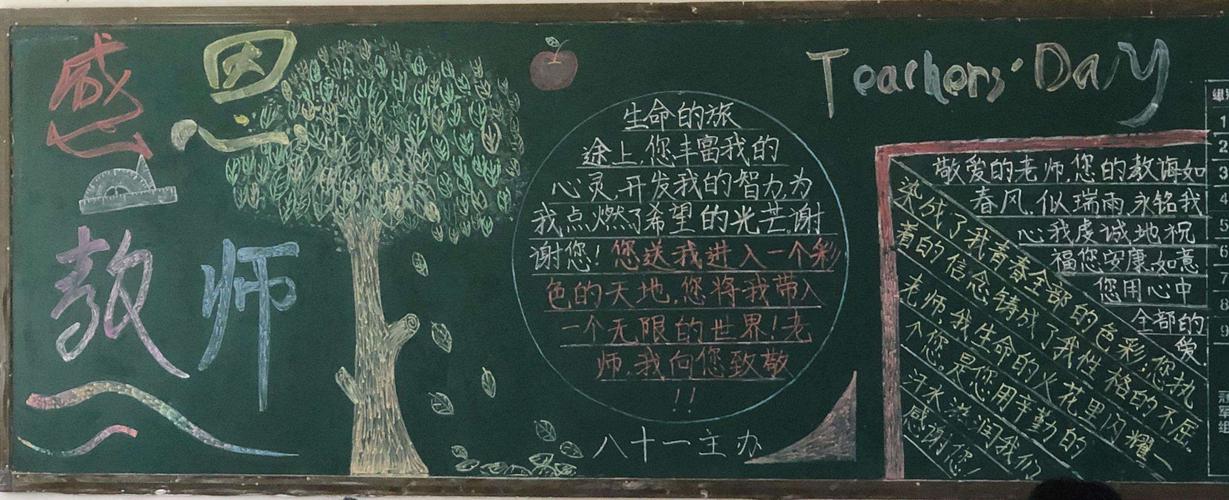 感恩
教师
生命的旅
途上,您丰富我的
心灵,开发我的智力,为
我点燃了希望的光芒,谢
谢您!您送我进入一个彩
色的天地,您将我带入
一个无限的世界!老
师,我向您致敬
!!
八十一主办
Teachers' Day
敬爱的老师,您的教诲如
春风,似瑞雨,永铭我
心,我虔诚地祝
福您安康,如意
您用心中
全部的
爱
染成了我青春全部的色彩;您执
着的信念,铸成了我性格的不屈
老师,我生命的火花里闪耀一
个您。是您用辛勤的
汗水滋润我们
感谢您!
1
2
3
4
5
6